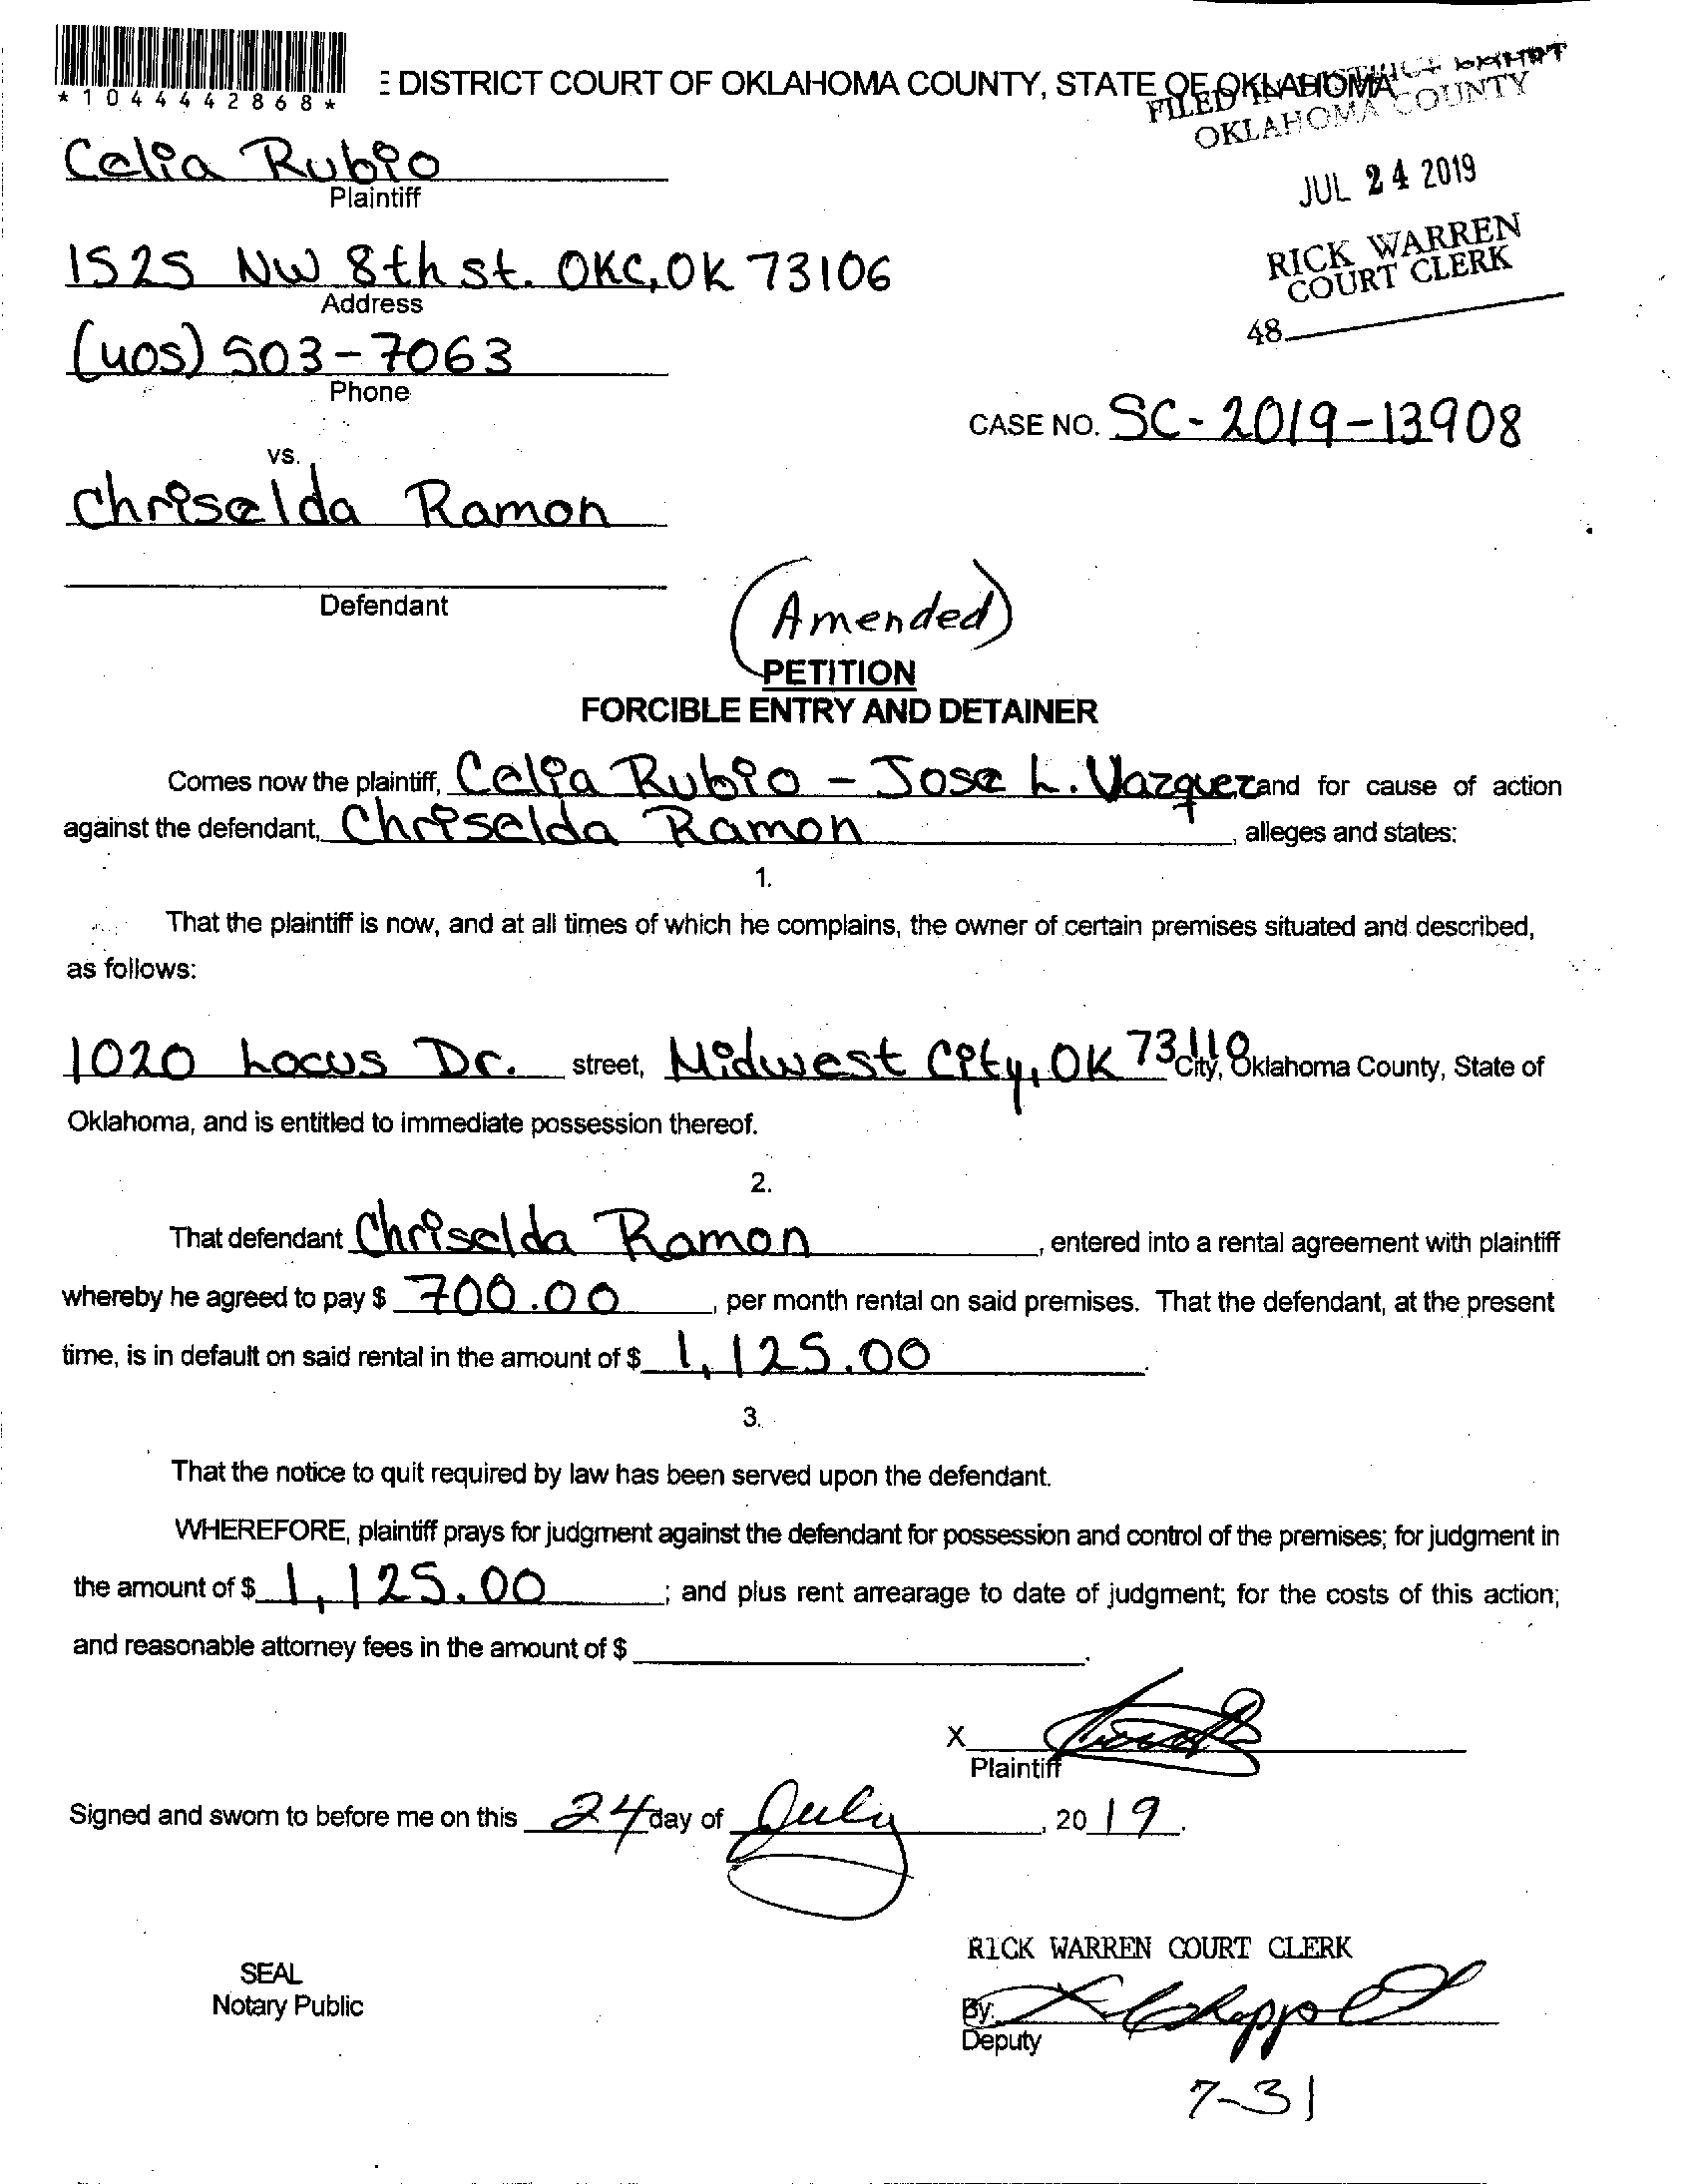 *1044442868*
E DISTRICT COURT OF OKLAHOMA COUNTY, STATE OF OKLAHOMA
FILED IN DISTRICT COURT
OKLAHOMA COUNTY
JUL 24 2019
RICK WARREN
COURT CLERK
48
Celia Rubio
Plaintiff
1525 NW 8th st. OKC, OK 73106
Address
(405) 503-7063
Phone
CASE NO. SC-2019-13908
vs.
Chriselda Ramon
Defendant
(Amended)
PETITION
FORCIBLE ENTRY AND DETAINER
Comes now the plaintiff, Celia Rubio - Jose L. Vazquez and for cause of action
against the defendant, Chriselda Ramon, alleges and states:
1.
That the plaintiff is now, and at all times of which he complains, the owner of certain premises situated and described,
as follows:
1020 Locus Dr. street, Midwest City, OK 73110 City, Oklahoma County, State of
Oklahoma, and is entitled to immediate possession thereof.
2.
That defendant Chriselda Ramon, entered into a rental agreement with plaintiff
whereby he agreed to pay $ 700.00, per month rental on said premises. That the defendant, at the present
time, is in default on said rental in the amount of $ 1,125.00.
3.
That the notice to quit required by law has been served upon the defendant.
WHEREFORE, plaintiff prays for judgment against the defendant for possession and control of the premises; for judgment in
the amount of $ 1,125.00; and plus rent arrearage to date of judgment; for the costs of this action;
and reasonable attorney fees in the amount of $ .
X
Plaintiff
Signed and sworn to before me on this 24 day of July, 2019.
RICK WARREN COURT CLERK
SEAL
Notary Public
By:
Deputy
7-31